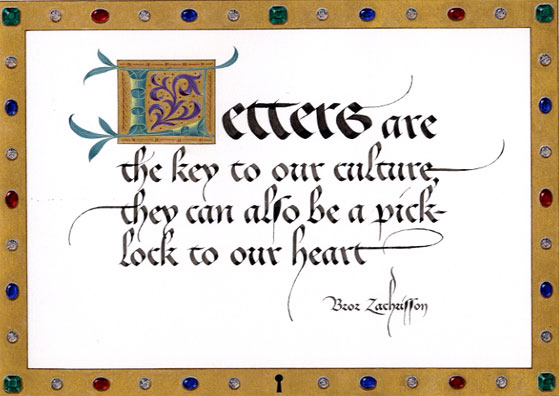 Letters are
the key to our culture,
they can also be a pick-
lock to our heart
Bror Zachrisson